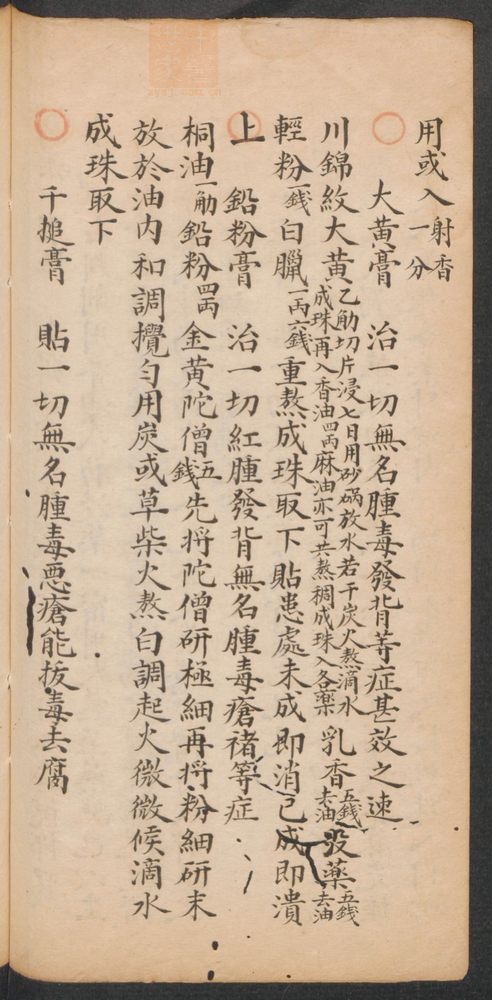 用或入射香一分
大黃膏 治一切無名腫毒發背等症甚效之速
川錦紋大黃乙觔切片浸七日用砂碢放水若干炭火熬滴水成珠再入香油四兩麻油亦可共熬稠成珠入各藥乳香五錢去油 没藥五錢去油
輕粉一錢白臘一兩六錢重熬成珠取下貼患處未成即消已成即潰
上 鉛粉膏 治一切紅腫發背無名腫毒瘡褚等症
桐油一觔鉛粉四兩金黃陀僧五錢先捋陀僧研極細再捋粉細研末
放於油內和調攪勻用炭或草柴火熬白調起火微微候滴水
成珠取下
千搥膏 貼一切無名腫毒惡瘡能拔毒去腐